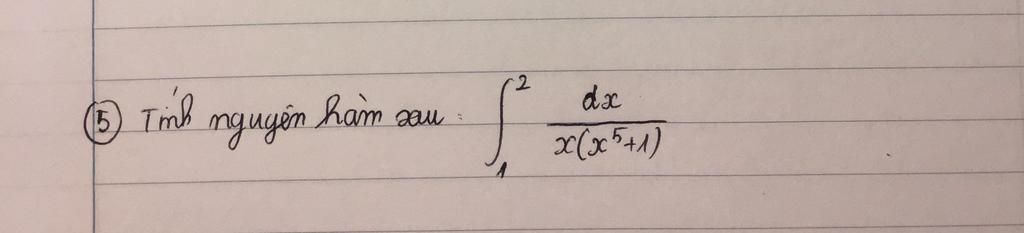 ⑤ Tính nguyên hàm sau: ∫₁² dx / x(x⁵+1)